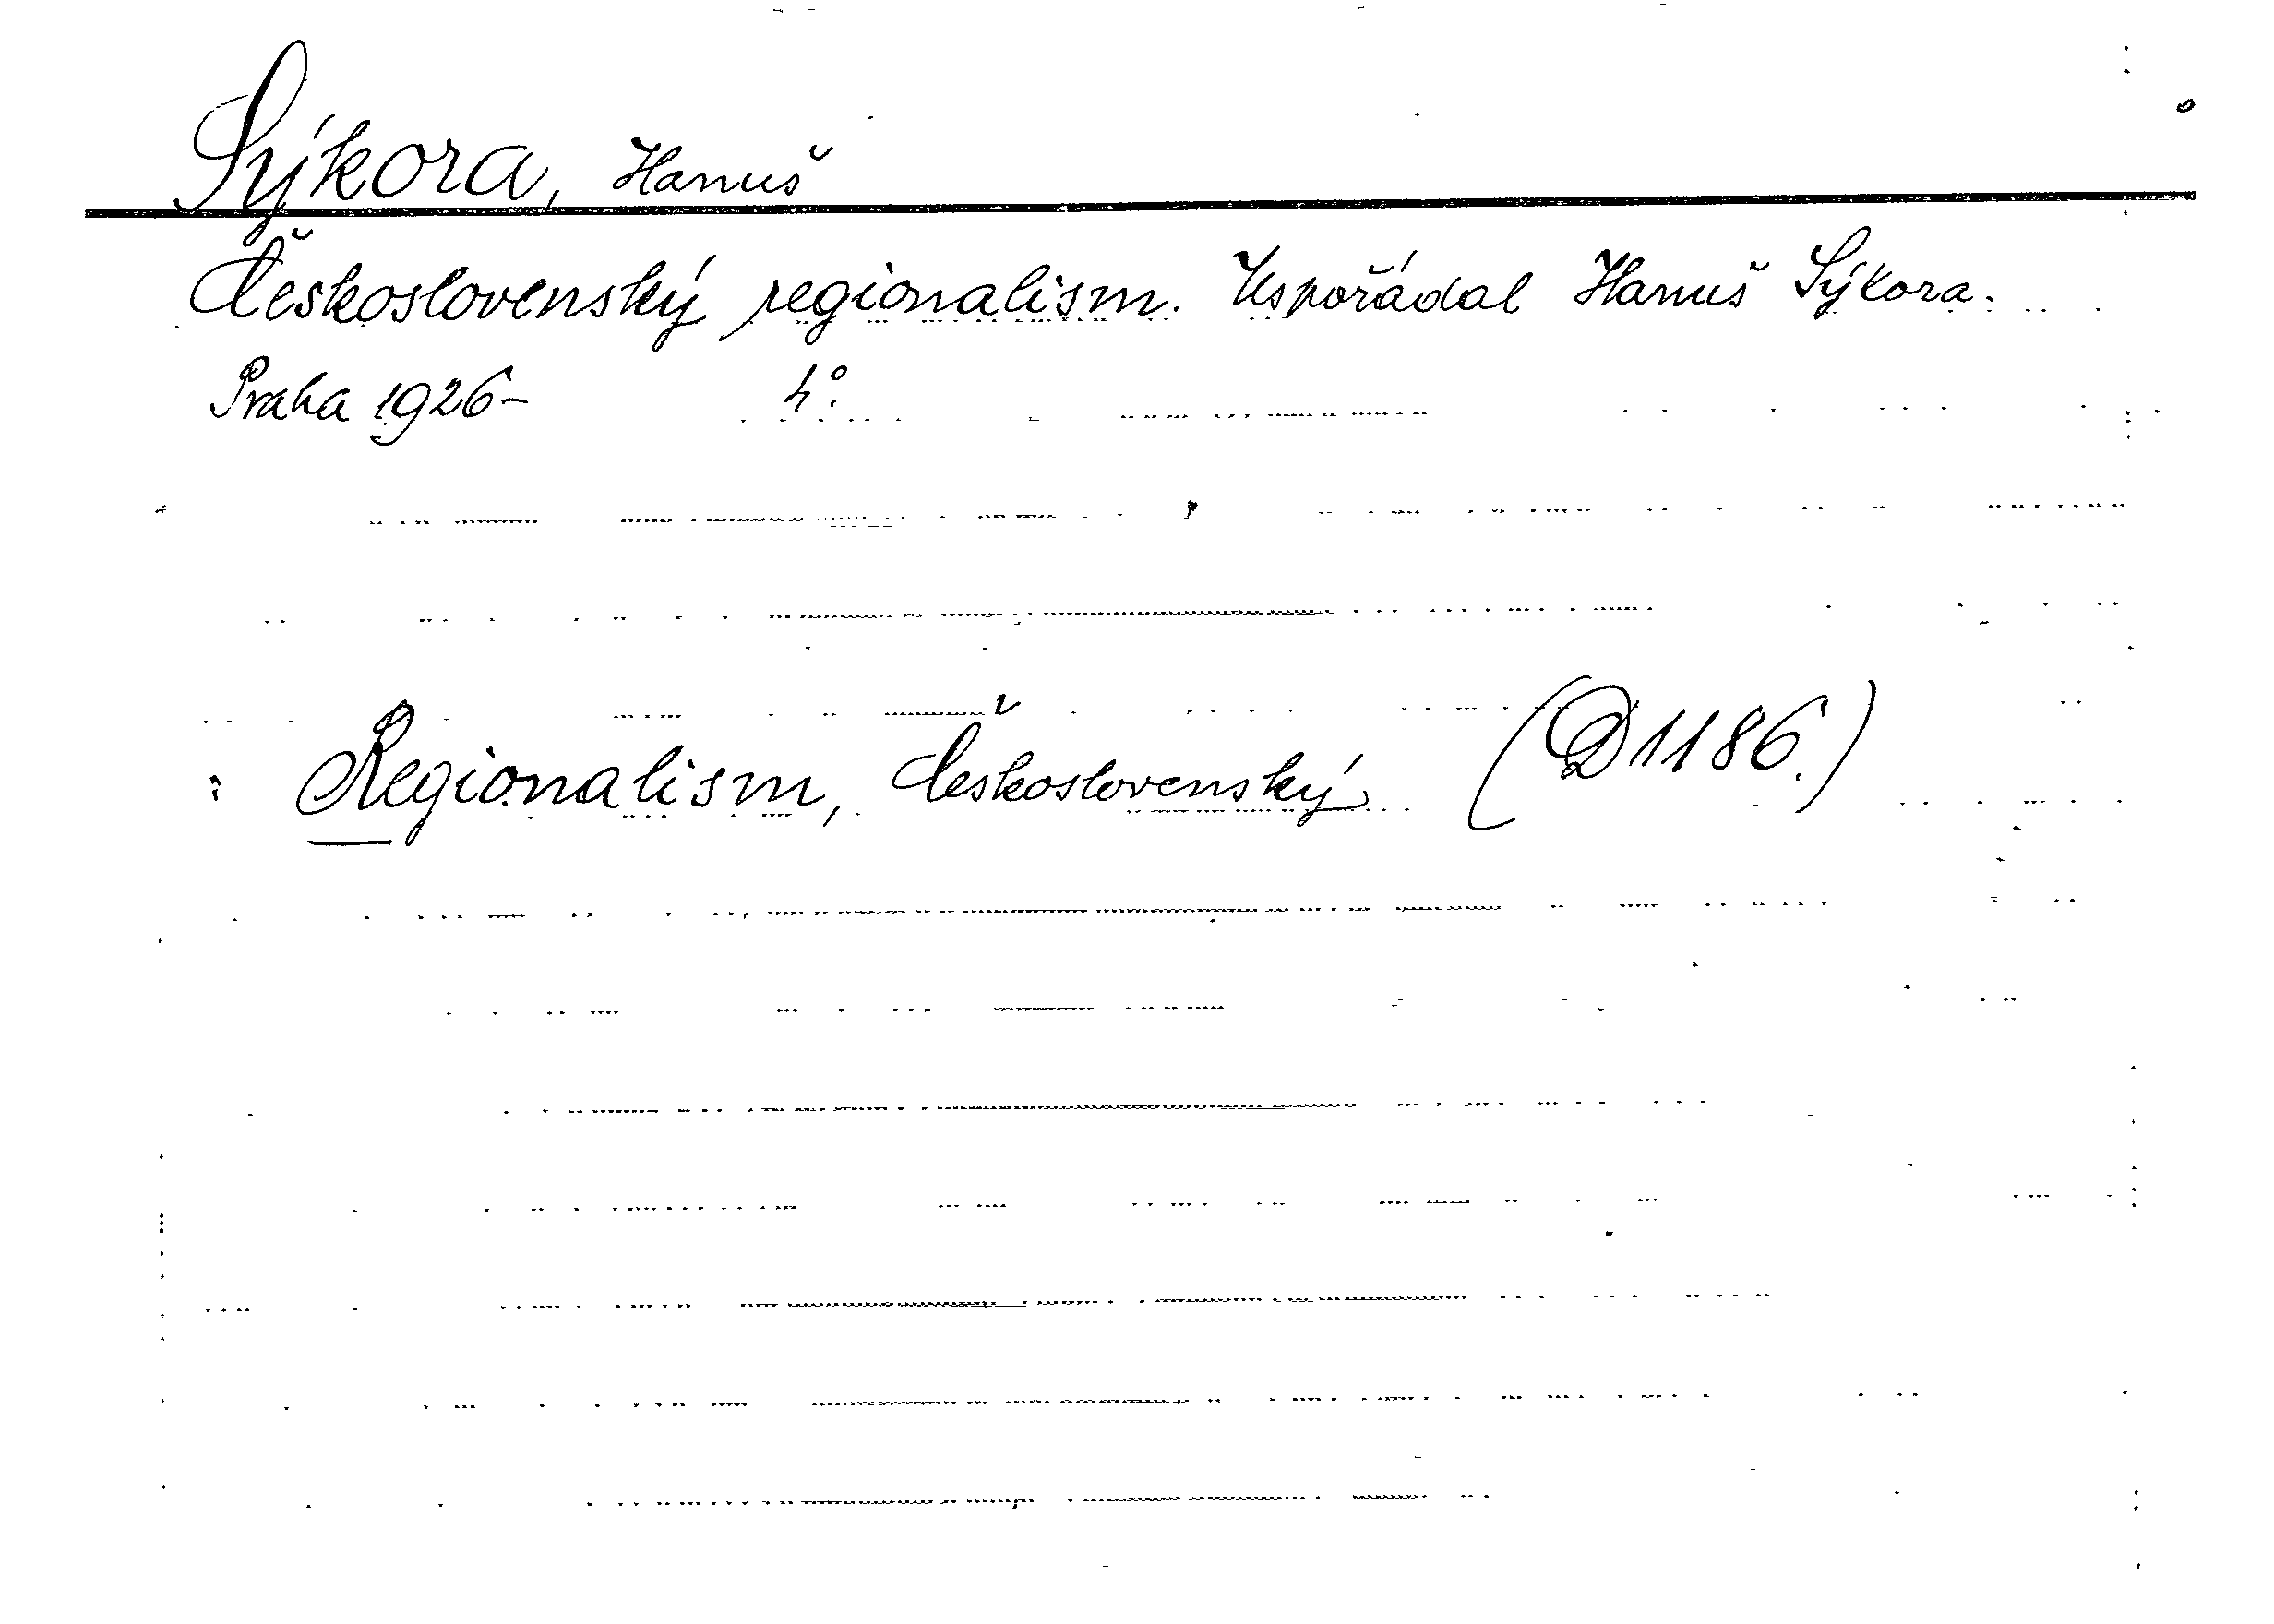 Sýkora, Hanuš
Československý regionalism. Uspořádal Hanuš Sýkora.
Praha 1926- 4°.
Regionalism, Československý (D1186.)